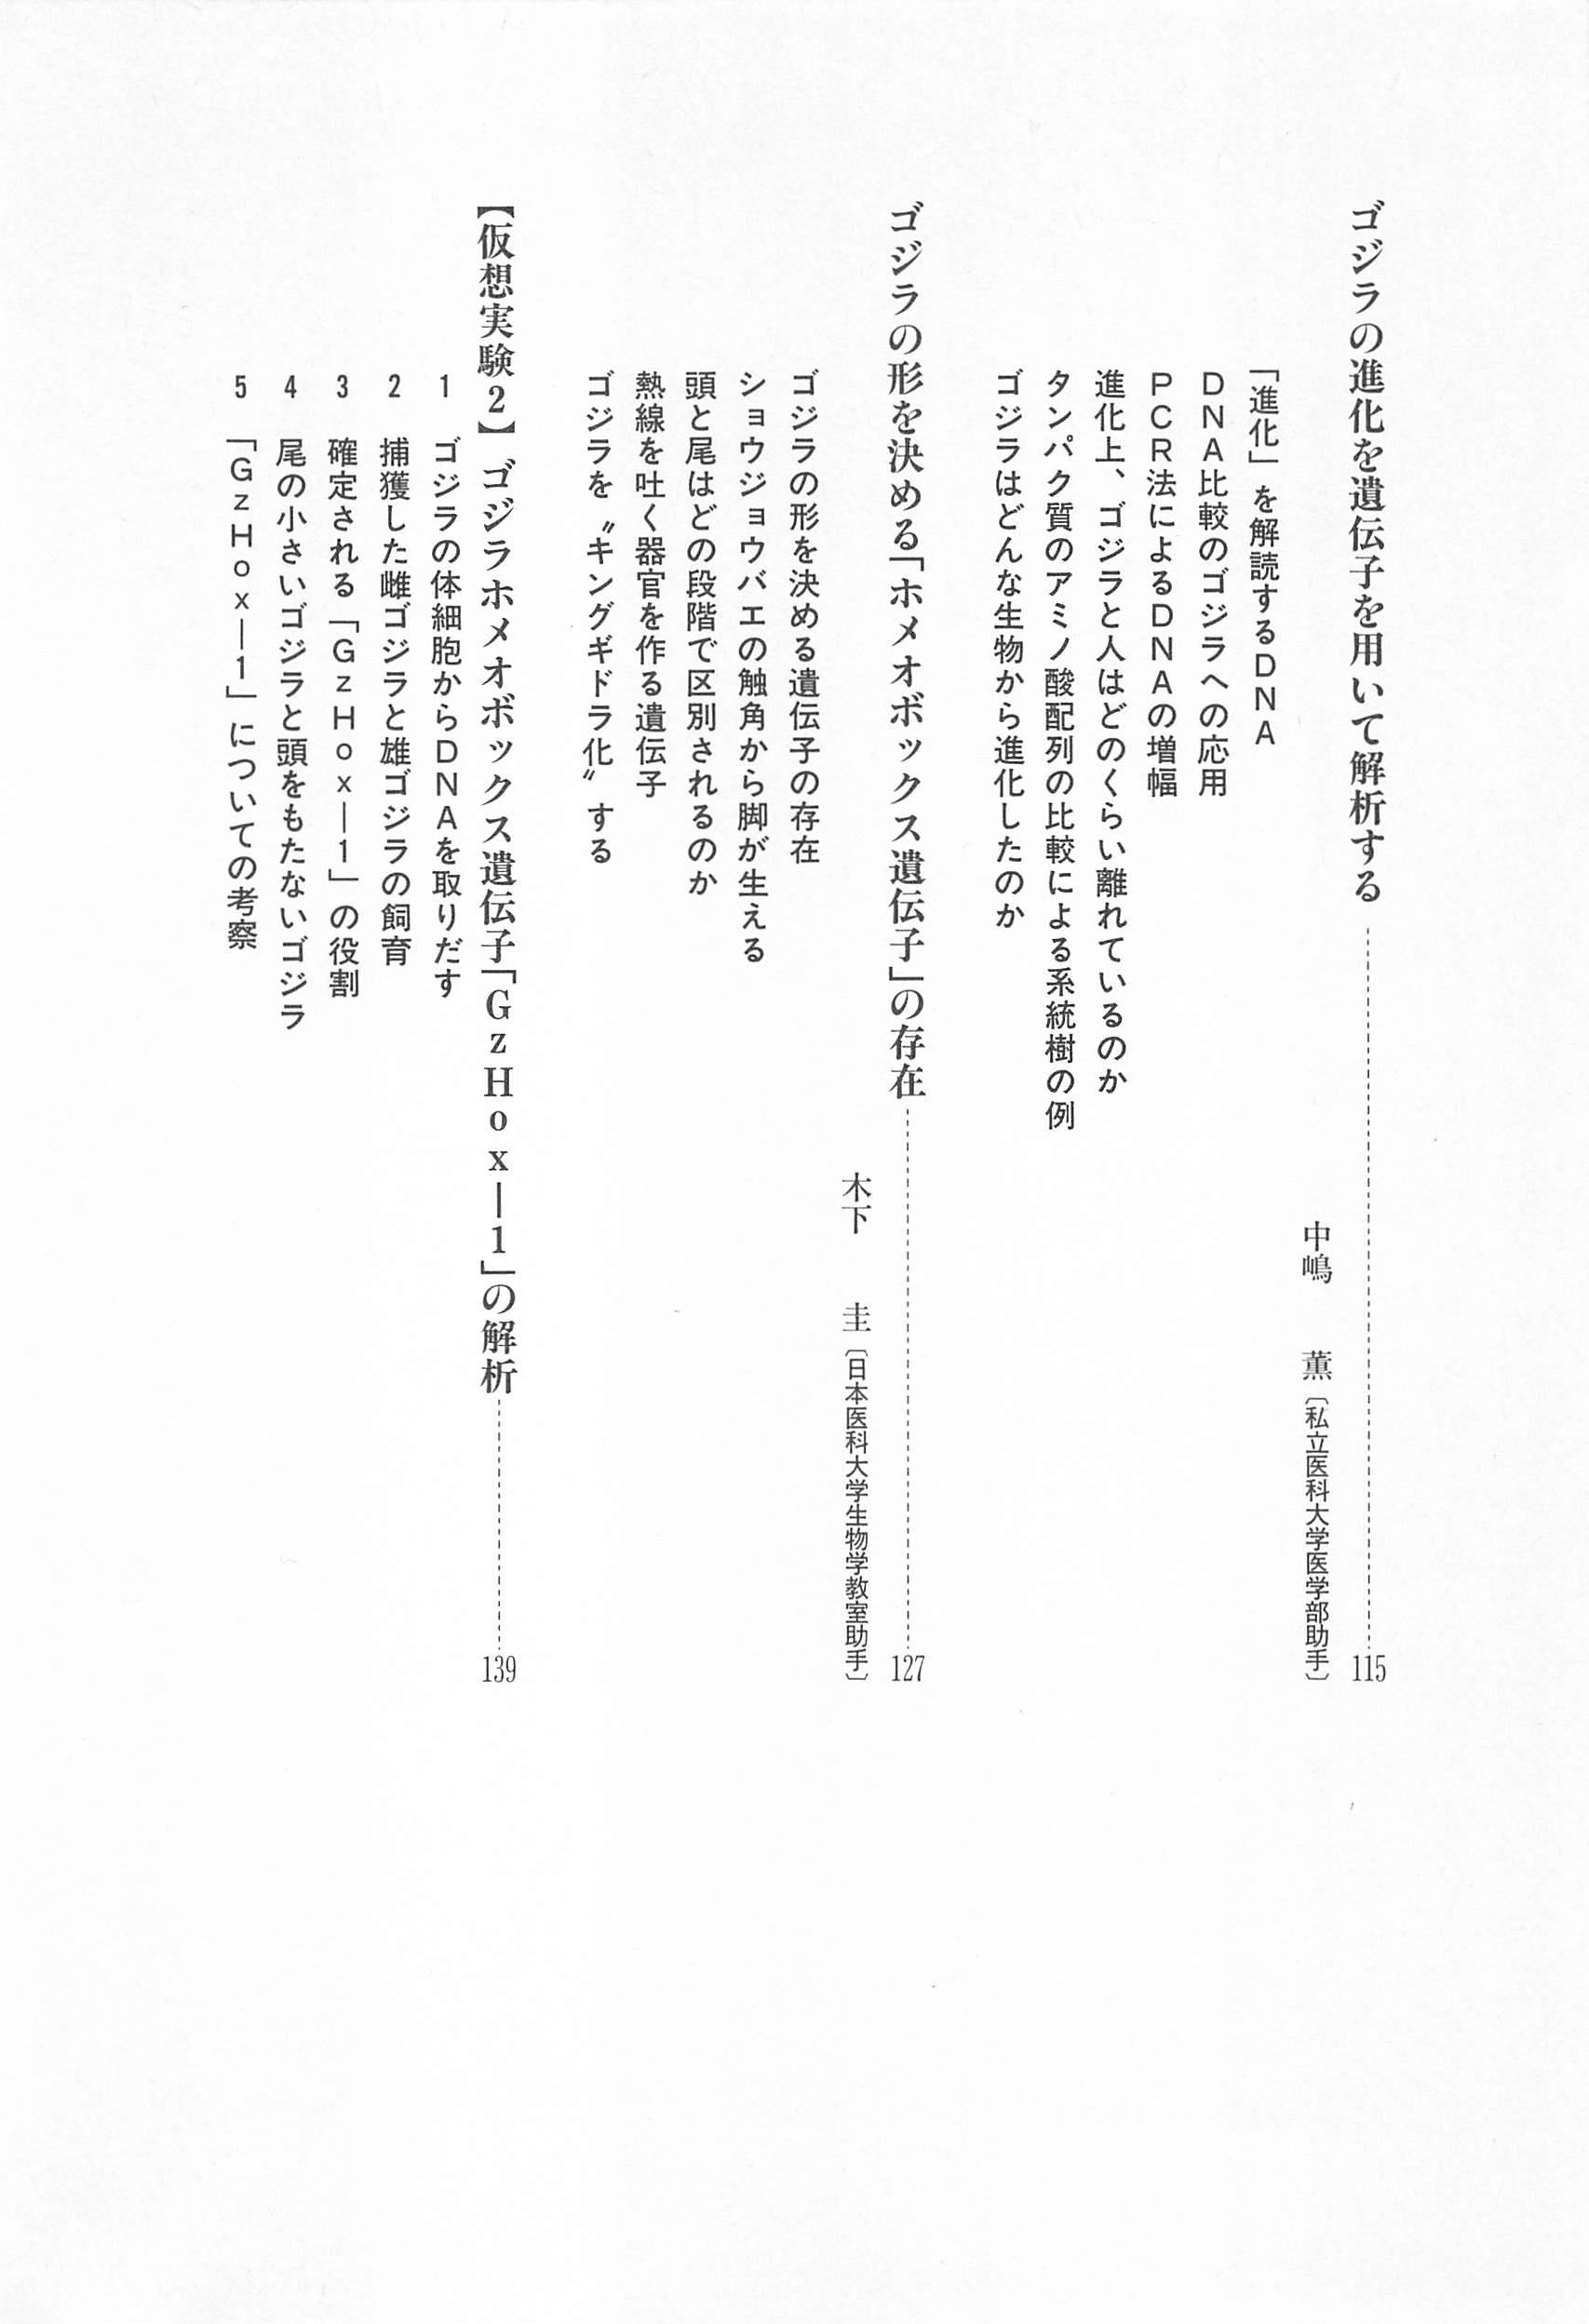 ゴジラの進化を遺伝子を用いて解析する 115
中嶋 薫〔私立医科大学医学部助手〕
「進化」を解読するDNA
DNA比較のゴジラへの応用
PCR法によるDNAの増幅
進化上、ゴジラと人はどのくらい離れているのか
タンパク質のアミノ酸配列の比較による系統樹の例
ゴジラはどんな生物から進化したのか
ゴジラの形を決める「ホメオボックス遺伝子」の存在 127
木下 圭〔日本医科大学生物学教室助手〕
ゴジラの形を決める遺伝子の存在
ショウジョウバエの触角から脚が生える
頭と尾はどの段階で区別されるのか
熱線を吐く器官を作る遺伝子
ゴジラを〝キングギドラ化〟する
【仮想実験2】ゴジラホメオボックス遺伝子「GzHox—1」の解析 139
1 ゴジラの体細胞からDNAを取りだす
2 捕獲した雌ゴジラと雄ゴジラの飼育
3 確定される「GzHox—1」の役割
4 尾の小さいゴジラと頭をもたないゴジラ
5 「GzHox—1」についての考察